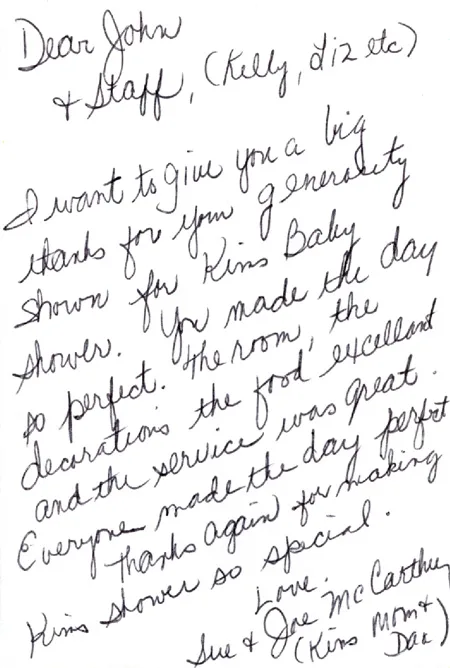 Dear John
& Staff, (Kelly, Liz etc)
I want to give you a big
thanks for your generocity
shown for Kims Baby
shower. You made the day
so perfect. The room, the
decorations the food excellant
and the service was great.
Everyone made the day perfect
Thanks again for making
Kims shower so special.
Love.
Sue & Joe McCarthy
(Kims Mom &
Dad)